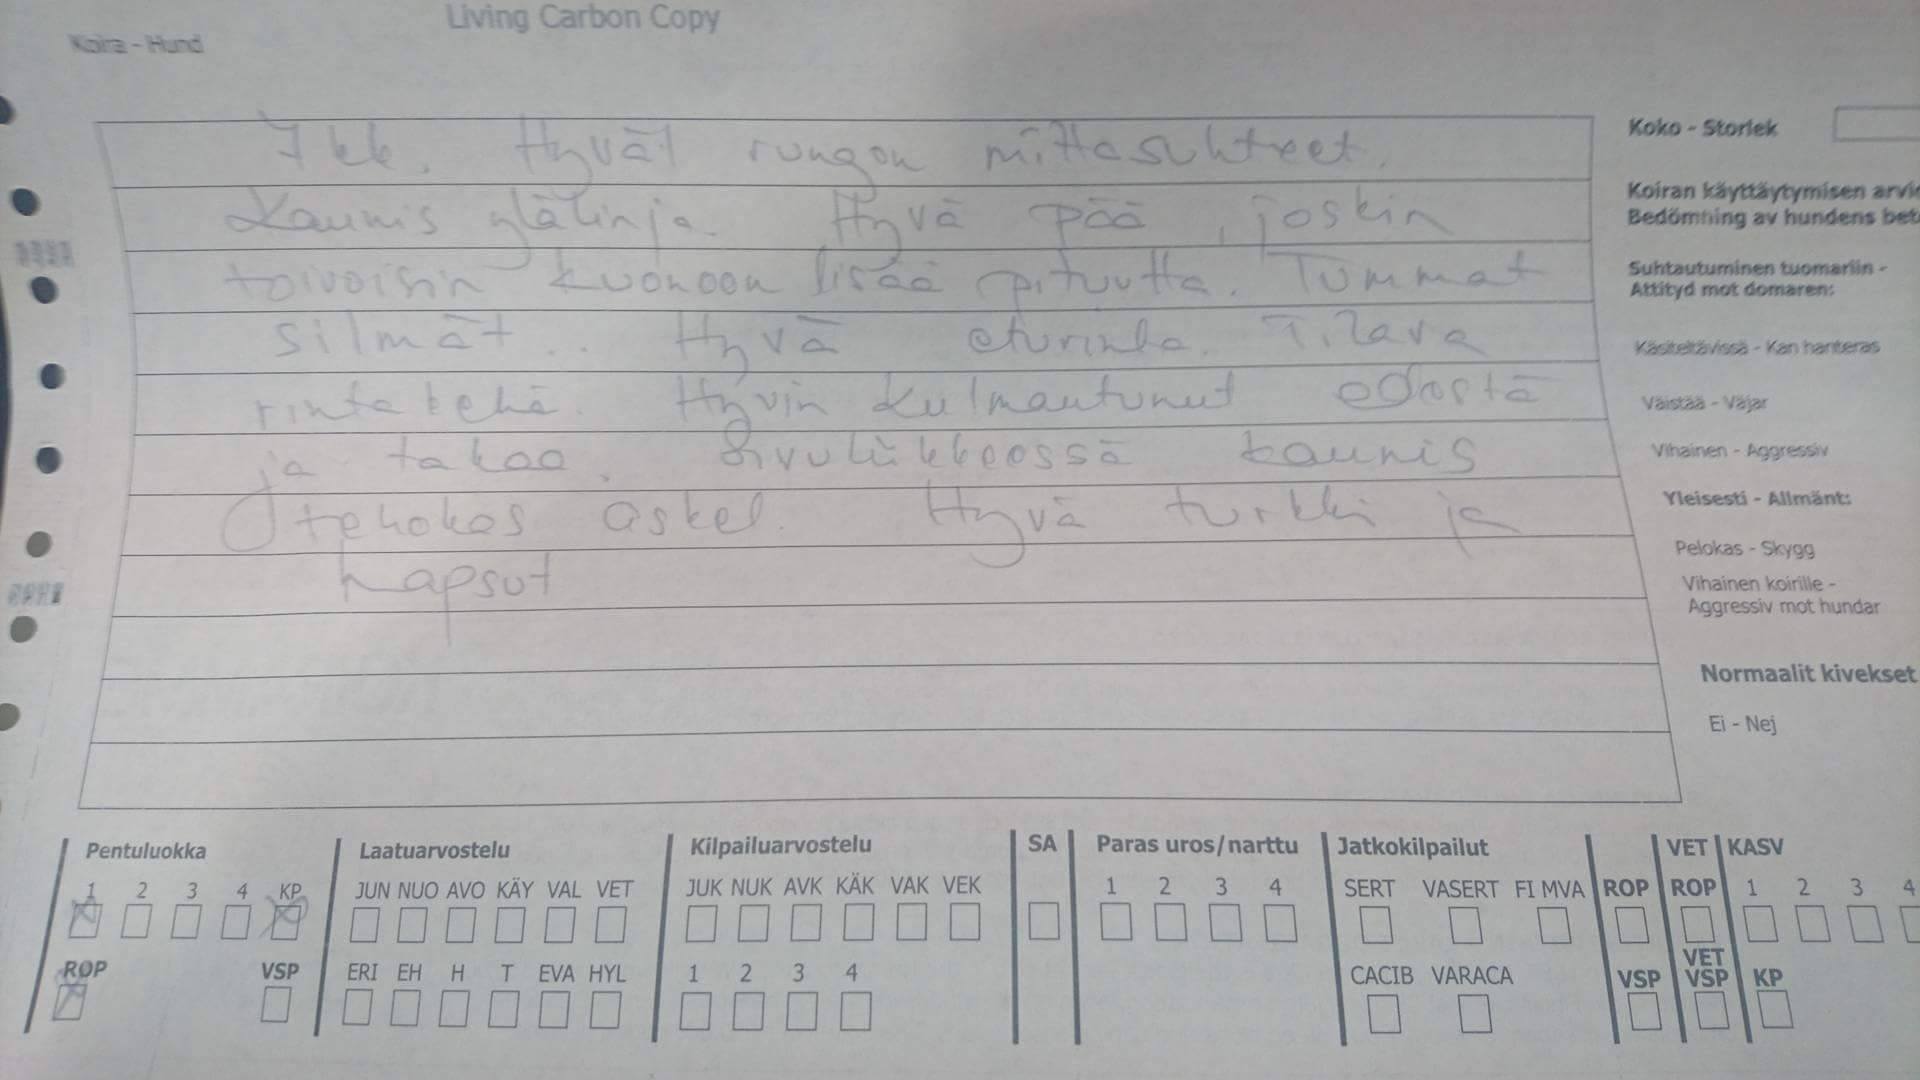 Living Carbon Copy
Koira - Hund
7kk. Hyvät rungon mittasuhteet.
Kaunis ylälinja. Hyvä pää, joskin
toivoisin kuonoon lisää pituutta. Tummat
silmät.. Hyvä eturinta. Tilava
rintakehä. Hyvin kulmautunut edestä
ja takaa. Sivuliikkeessä kaunis
tehokas askel. Hyvä turkki ja
hapsut
Koko - Storlek
Koiran käyttäytymisen arvio
Bedömning av hundens bete
Suhtautuminen tuomariin -
Attityd mot domaren:
Käsiteltävissä - Kan hanteras
Väistää - Väjar
Vihainen - Aggressiv
Yleisesti - Allmänt:
Pelokas - Skygg
Vihainen koirille -
Aggressiv mot hundar
Normaalit kivekset
Ei - Nej
Pentuluokka
1 2 3 4 KP
ROP VSP
Laatuarvostelu
JUN NUO AVO KÄY VAL VET
ERI EH H T EVA HYL
Kilpailuarvostelu
JUK NUK AVK KÄK VAK VEK
1 2 3 4
SA
Paras uros/narttu
1 2 3 4
Jatkokilpailut
SERT VASERT FI MVA
CACIB VARACA
ROP
VSP
VET
ROP
VET
VSP
KASV
1 2 3 4
KP